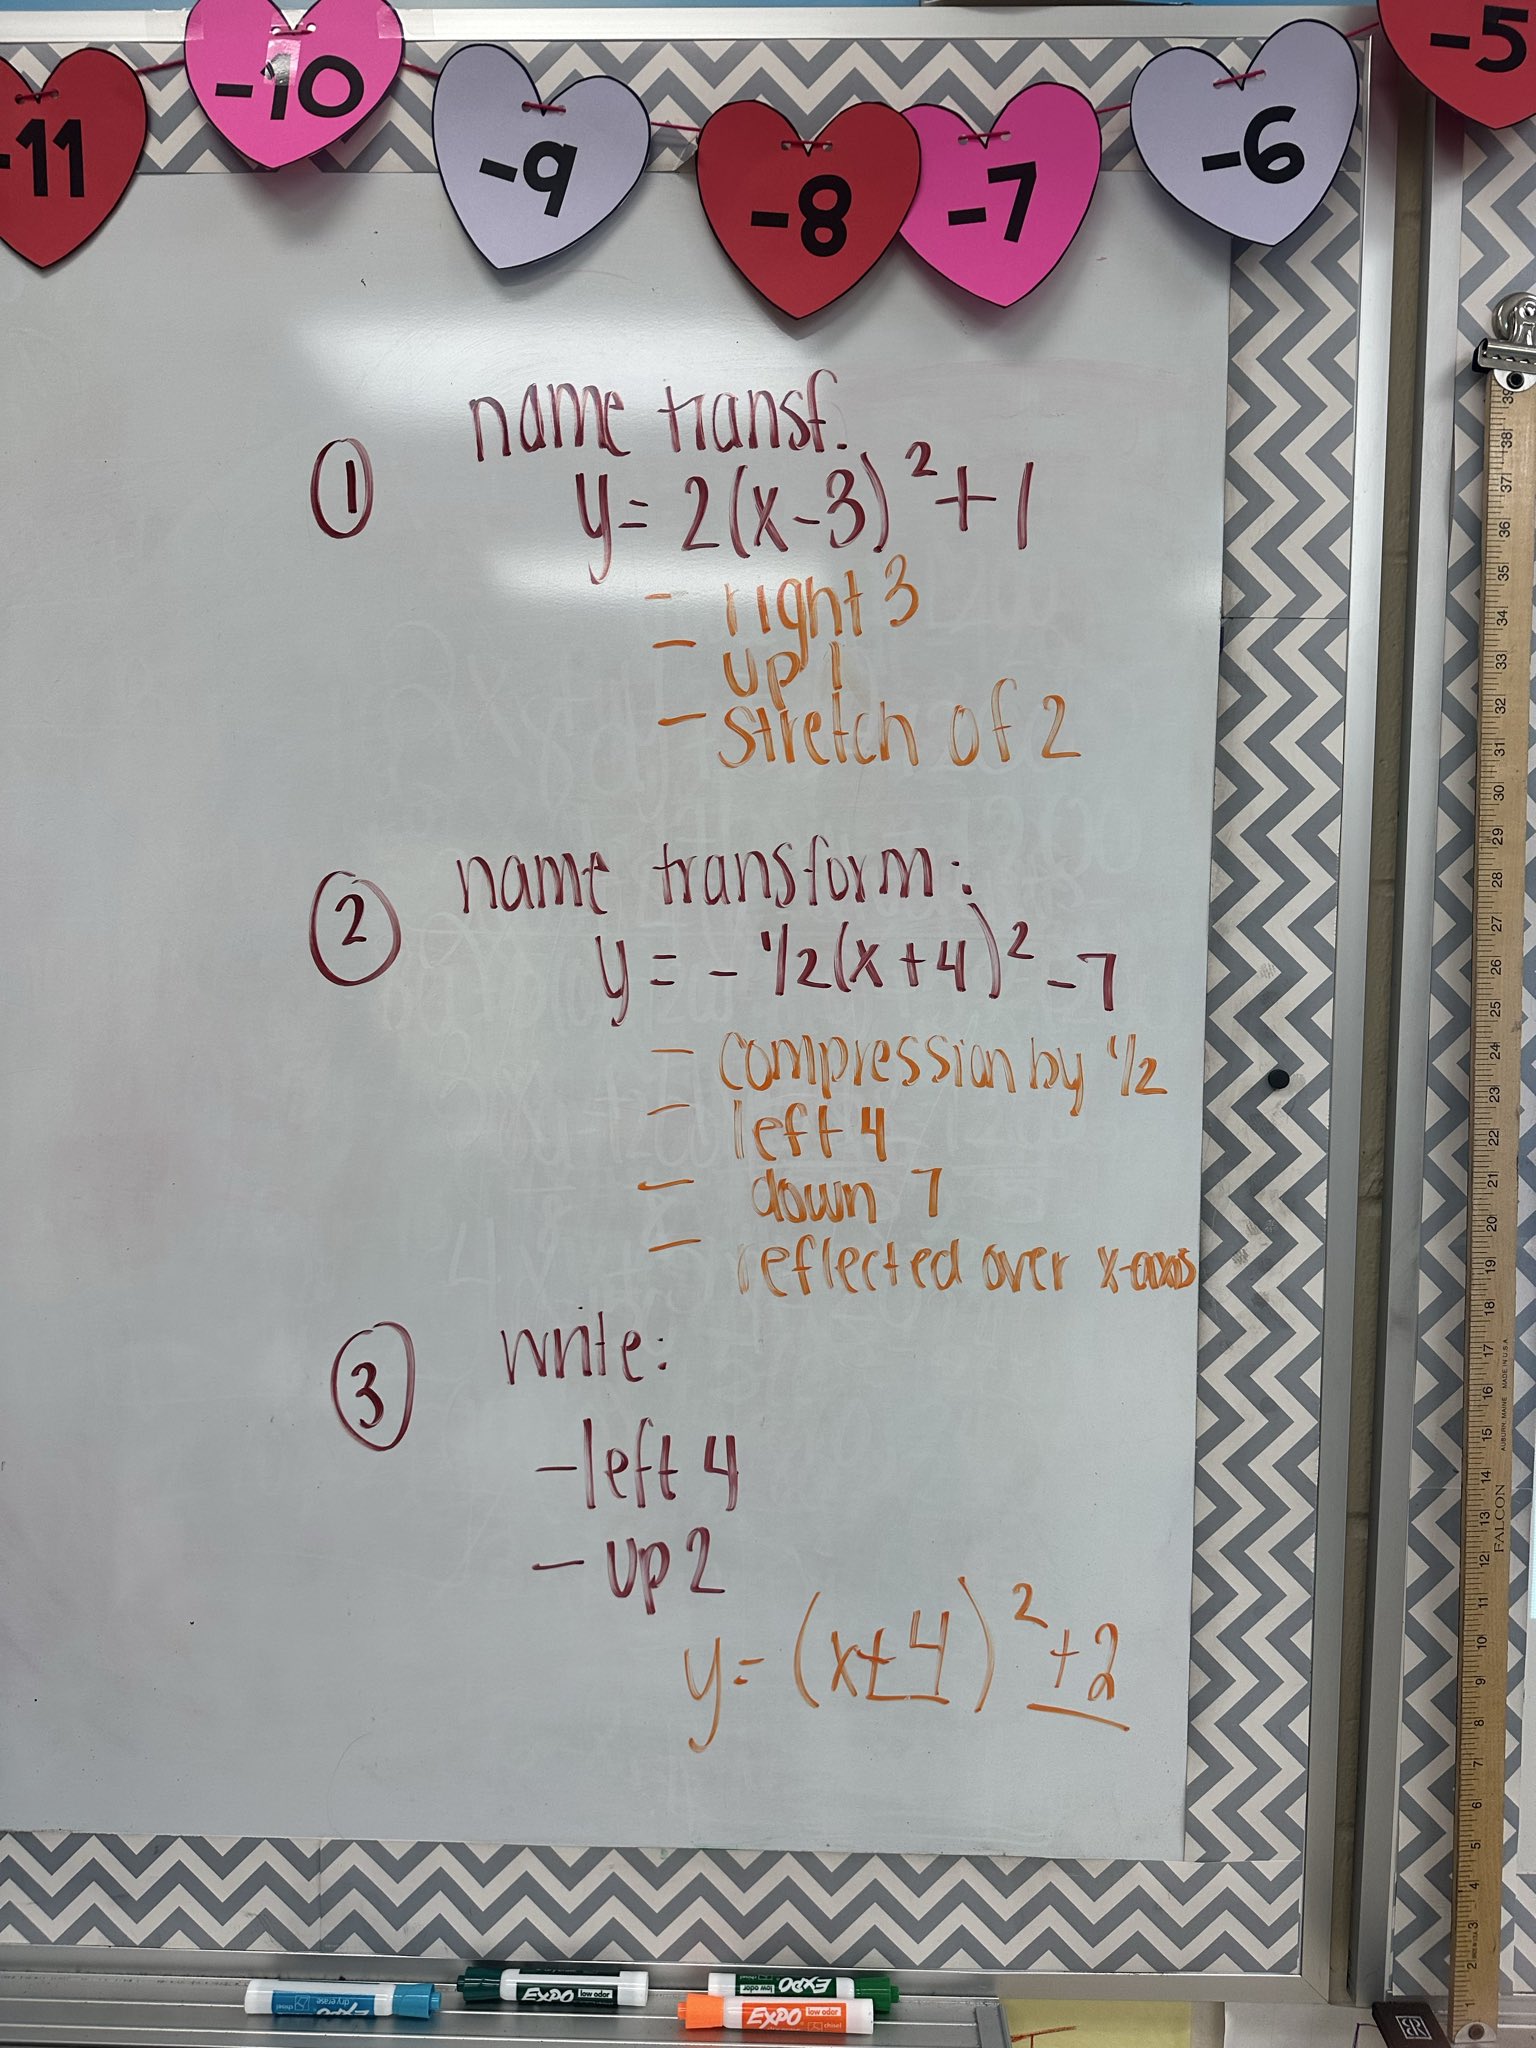 -11 -10 -9 -8 -7 -6 -5
① name transf.
y = 2(x-3)² + 1
- right 3
- up 1
- stretch of 2
② name transform:
y = - 1/2(x+4)² - 7
- compression by 1/2
- left 4
- down 7
- reflected over x-axis
③ write:
- left 4
- up 2
y = (x+4)² + 2
39
38
37
36
35
34
33
32
31
30
29
28
27
26
25
24
23
22
21
20
19
18
17
16
15
14
13
12
11
10
9
8
7
6
5
4
3
2
1
AUBURN, MAINE MADE IN U.S.A.
FALCON
EXPO dry erase chisel
EXPO low odor
EXPO low odor
EXPO low odor chisel